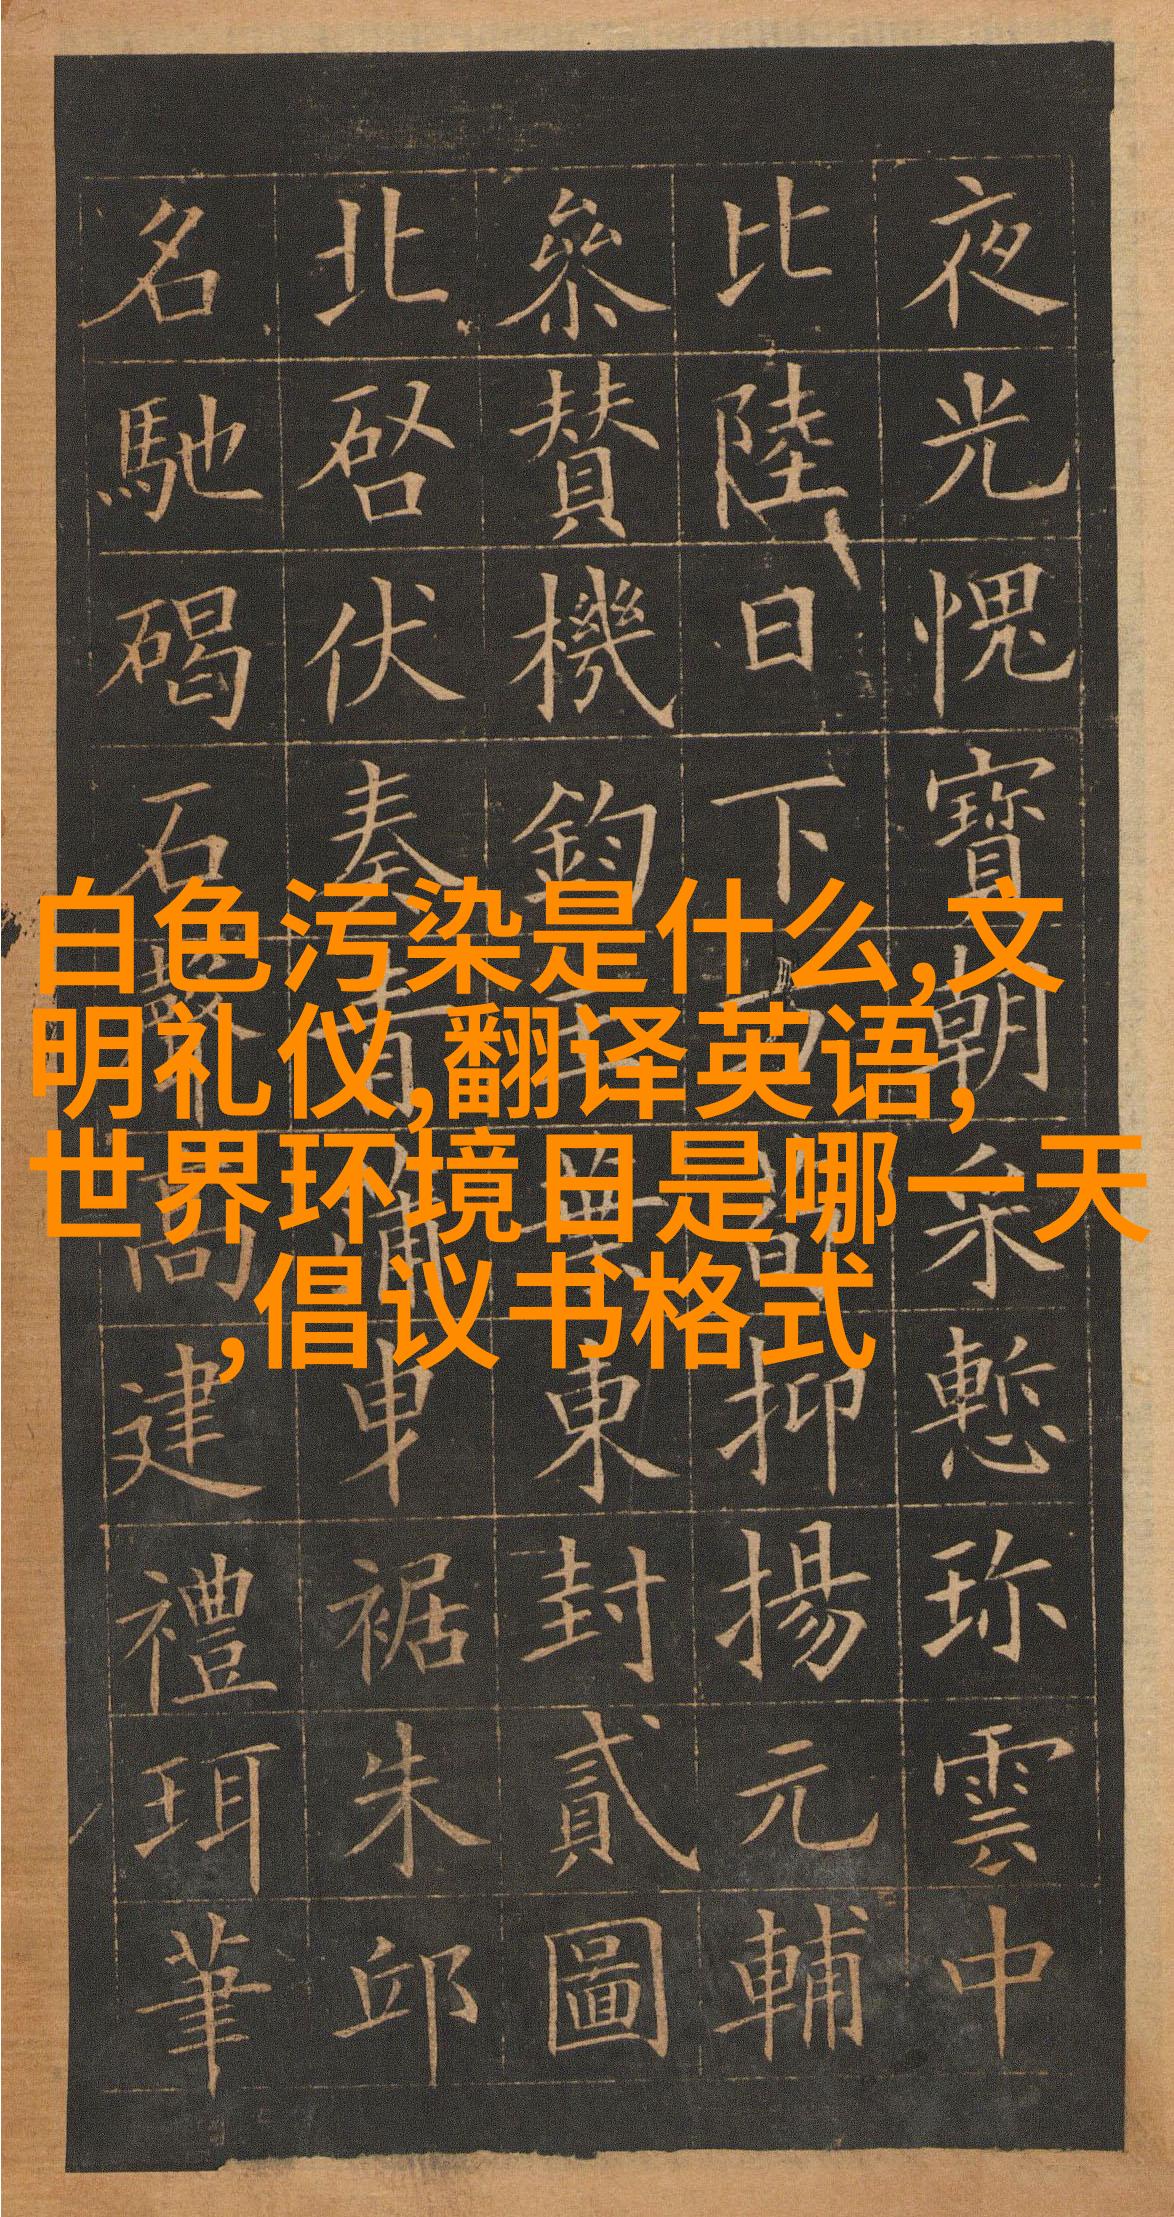 夜光愧寶朝采慙珎雲中
比陸日下抑揚元輔
參贊機鈞東封貳圖
北啓伏奏青蒲曳裾朱邸
名馳碣石聲高建禮珥筆
白色污染是什么,文
明礼仪,翻译英语,
世界环境日是哪一天
,倡议书格式